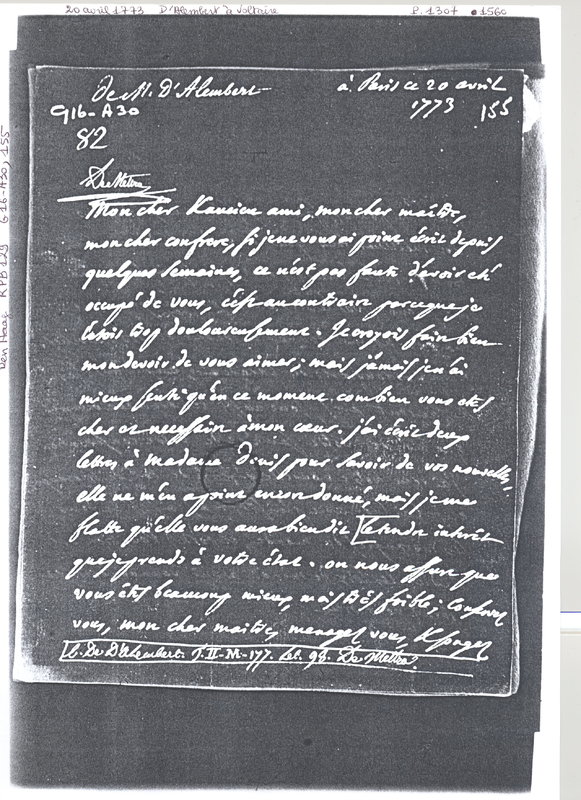 20 avril 1773 D'Alembert à Voltaire P. 1307 1560
Den Haag RPB 129 G16-A30, 155
de M. D'Alembert à Paris ce 20 avril
G16-A30 1773 155
82
Mon cher &amp; ancien ami, mon cher maître,
mon cher confrere, si je ne vous ai point écrit depuis
quelques semaines, ce n'est pas faute d'avoir été
occupé de vous, c'est au contraire parceque je
l'étois trop douloureusement. Je croyois faire bien
mon devoir de vous aimer; mais jamais je n'ai
mieux senti qu'en ce moment combien vous etes
cher et necessaire à mon cœur. j'ai écrit deux
lettres à madame Denis pour savoir de vos nouvelles,
elle ne m'en a point encore donné, mais je me
flatte qu'elle vous aura bien dit le tendre interêt
que je prends à votre état. on nous assure que
vous êtes beaucoup mieux, mais très foible; conservez
vous, mon cher maitre, menagez vous, & songez
L. De D'Alembert. T. II-M-177. Let. 98.